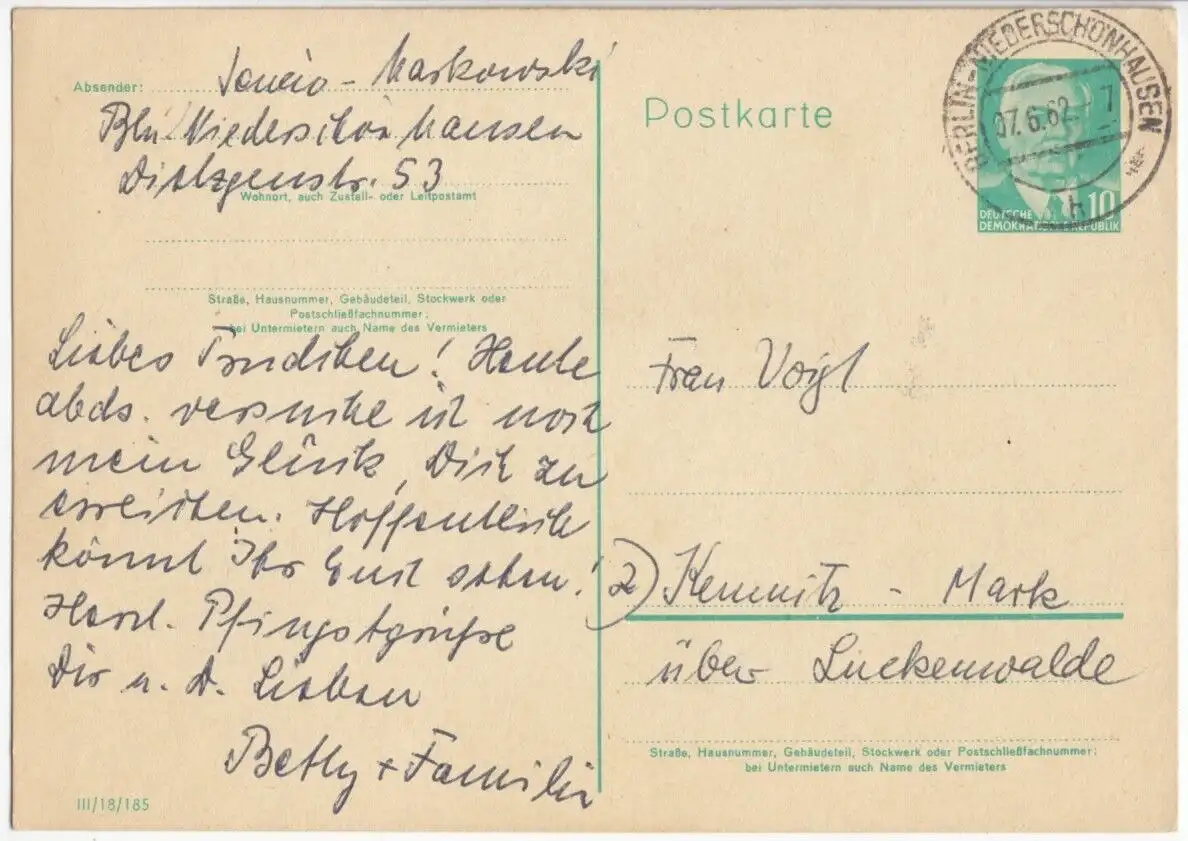 Absender: - Markowski
Bln./Niederschönhausen
Dietzgenstr. 53
Wohnort, auch Zustell- oder Leitpostamt
Straße, Hausnummer, Gebäudeteil, Stockwerk oder
Postschließfachnummer;
bei Untermietern auch Name des Vermieters
Liebes Trudchen! Heute
abds. versuche ich noch
mein Glück, Dich zu
erreichen. Hoffentlich
könnt Ihr Euch sehen!
Herzl. Pfingstgrüße
Dir u. d. Lieben
Betty + Familie
III/18/185
Postkarte
BERLIN-NIEDERSCHÖNHAUSEN
07.6.62.-7
h
10
DEUTSCHE
DEMOKRATISCHE REPUBLIK
Frau Voigt
2) Kemnitz - Mark
über Luckenwalde
Straße, Hausnummer, Gebäudeteil, Stockwerk oder Postschließfachnummer;
bei Untermietern auch Name des Vermieters